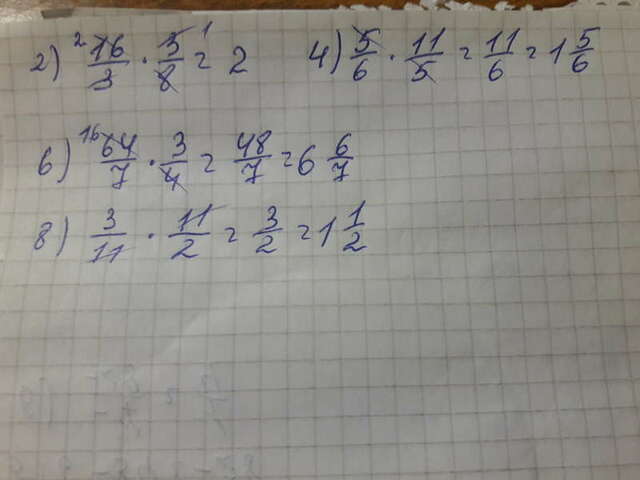 2) ²16/3 · 3/8 = 2¹ 4) 5/6 · 11/5 = 11/6 = 1 5/6
6) ¹⁶64/7 · 3/4 = 48/7 = 6 6/7
8) 3/11 · 11/2 = 3/2 = 1 1/2